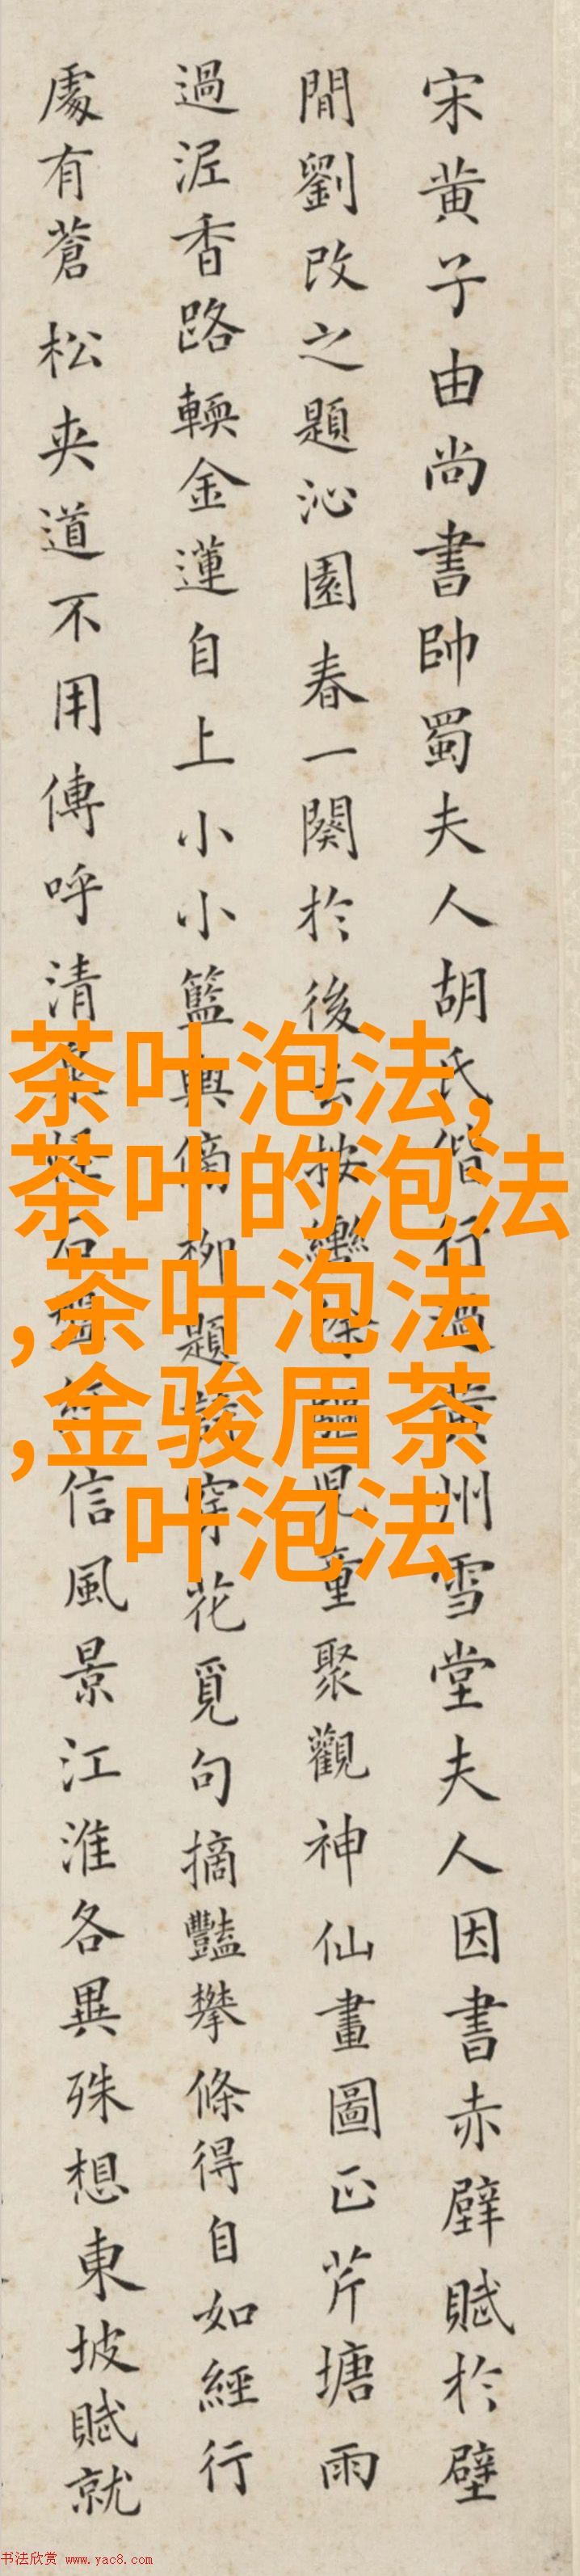 宋黄子由尚書帥蜀夫人胡氏偕行過黄州雪堂夫人因書赤壁賦於壁
間劉改之題沁園春一闋於後云按轡徐驅兒童聚觀神仙畫圖正芹塘雨
過泥香路輭金蓮自上小小籃輿傍柳題詩穿花覓句摘豔攀條得自如經行
處有蒼松夾道不用傳呼清泉怪石盤紆信風景江淮各異殊想東坡賦就
茶叶泡法,
茶叶的泡法
,茶叶泡法
,金骏眉茶
叶泡法
书法欣赏 www.yac8.com